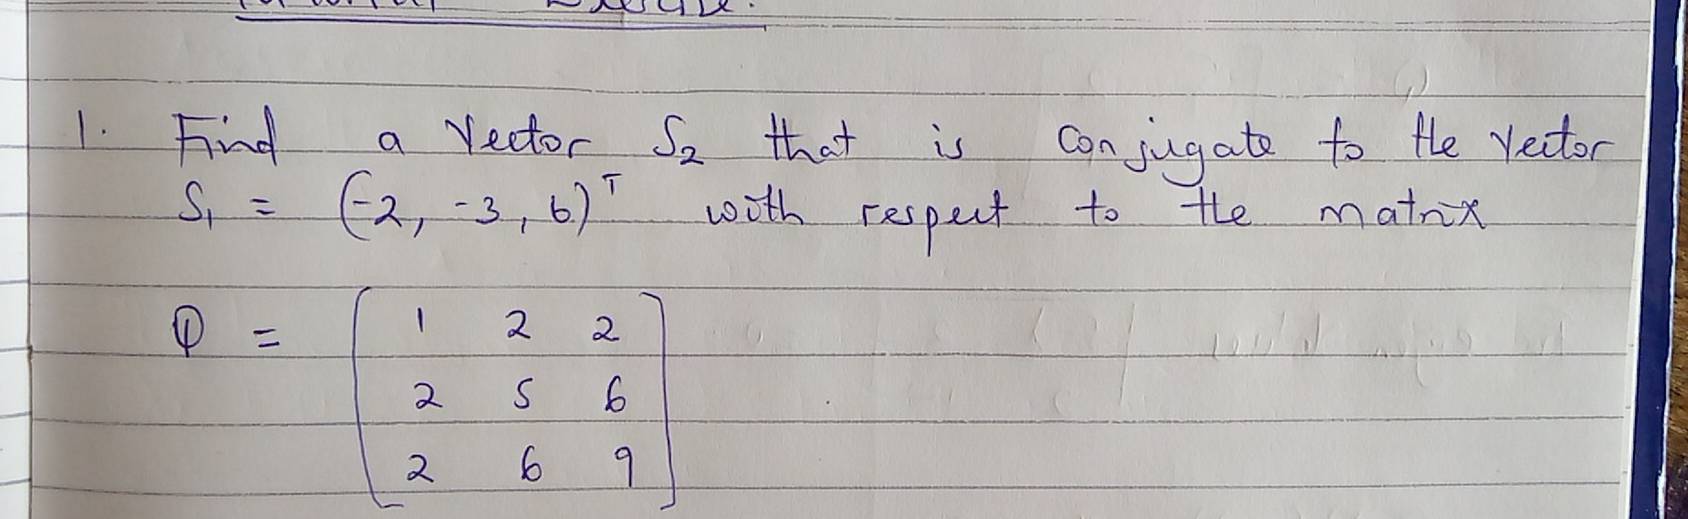 1. Find a Vector S₂ that is Conjugate to the Vector
S₁ = (-2, -3, 6)ᵀ with respect to the matrix
Q = [ 1 2 2
2 5 6
2 6 9 ]